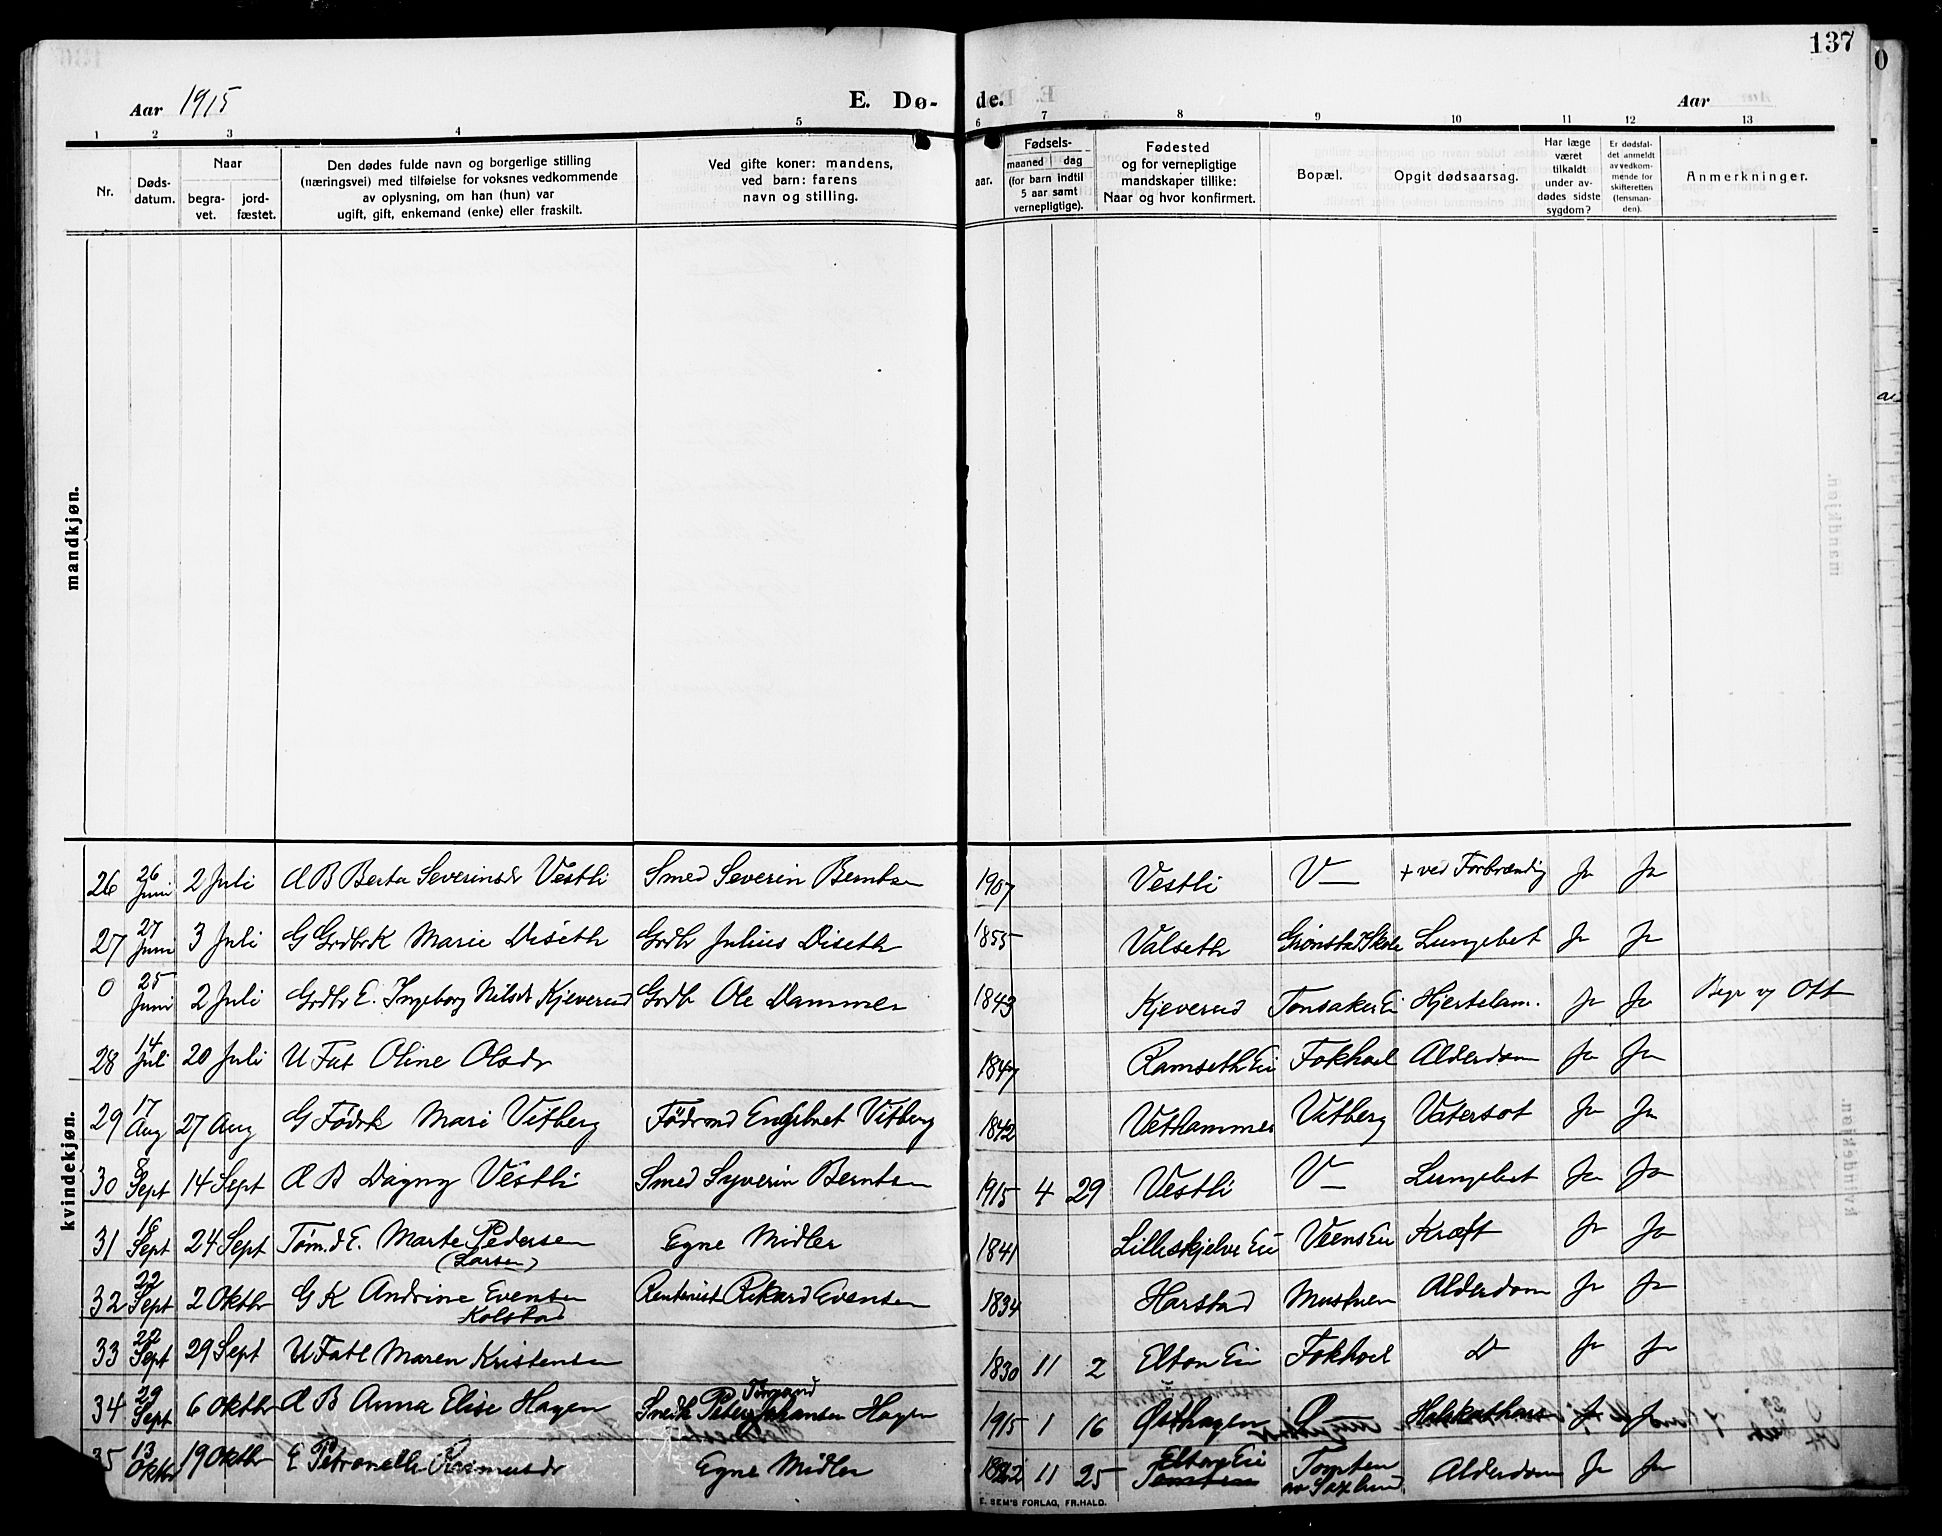 137
Aar 1915
E. Dø-
de.
Aar
1 2 3 4 5 6 7 8 9 10 11 12 13
Nr.
Døds-
datum.
Naar
begra-
vet.
jord-
fæstet.
Den dødes fulde navn og borgerlige stilling
(næringsvei) med tilføielse for voksnes vedkommende
av oplysning, om han (hun) var
ugift, gift, enkemand (enke) eller fraskilt.
Ved gifte koner: mandens,
ved barn: farens
navn og stilling.
aar.
Fødsels-
maaned dag
(for barn indtil
5 aar samt
vernepligtige).
Fødested
og for vernepligtige
mandskaper tillike:
Naar og hvor konfirmert.
Bopæl.
Opgit dødsaarsag.
Har læge
været
tilkaldt
under av-
dødes sidste
sygdom?
Er dødsfal-
det anmeldt
av vedkom-
mende for
skifteretten
(lensman-
den).
Anmerkninger.
mandkjøn.
kvindekjøn.
26 26 Juni 2 Juli d B Berta Severinsdr Vestli Smed Severin Berntsen 1907 Vestli V— + ved Forbrænding Ja Ja
27 27 Juni 3 Juli G GrdbrK Marie Diseth Grdbr Julius Diseth 1855 Valseth Grønstad Skole Lungebet Ja Ja
0 25 Juni 2 Juli Grdbr E. Ingeborg Nilsdr Kjeverud Grdb Ole Dammen 1843 Kjeverud Tonsaker Ei Hjertelam. Ja Ja Begr Ott
28 14 Juli 20 Juli U Fat Oline Olsdr 1847 Ramseth Ei Fokhoel Alderdom Ja Ja
29 17 Aug 27 Aug G Fødrk Mari Vitberg Fødrmd Engebret Vitberg 1842 Vethammer Vitberg Vatersot Ja Ja
30 8 Sept 14 Sept d B Dagny Vestli Smed Syverin Berntsen 1915 4 29 Vestli V— Lungebet Ja Ja
31 16 Sept 24 Sept Tøm.d E. Marte Pedersen Egne Midler 1841 Lilleskjelve Ei Veens Ei Kræft Ja Ja
(Larsen)
32 22 Sept 2 Oktbr G K Andrine Evensen Rentenist Rikard Evensen 1834 Harstad Mustuen Alderdom Ja Ja
Kolstad
33 22 Sept 29 Sept U Fatl Maren Kristensen 1830 11 2 Elton Ei Fokhoel D Ja Ja
34 29 Sept 6 Oktbr d B Anna Elise Hagen Peter Johansen Hagen 1915 1 16 Østhagen Ø Ja Ja
35 13 Oktbr 19 Oktbr E Petronelle Rasmusdr Egne Midler 11 25 Elton Ei Tomten Alderdom Ja Ja
E. SEM'S FORLAG, FR.HALD.